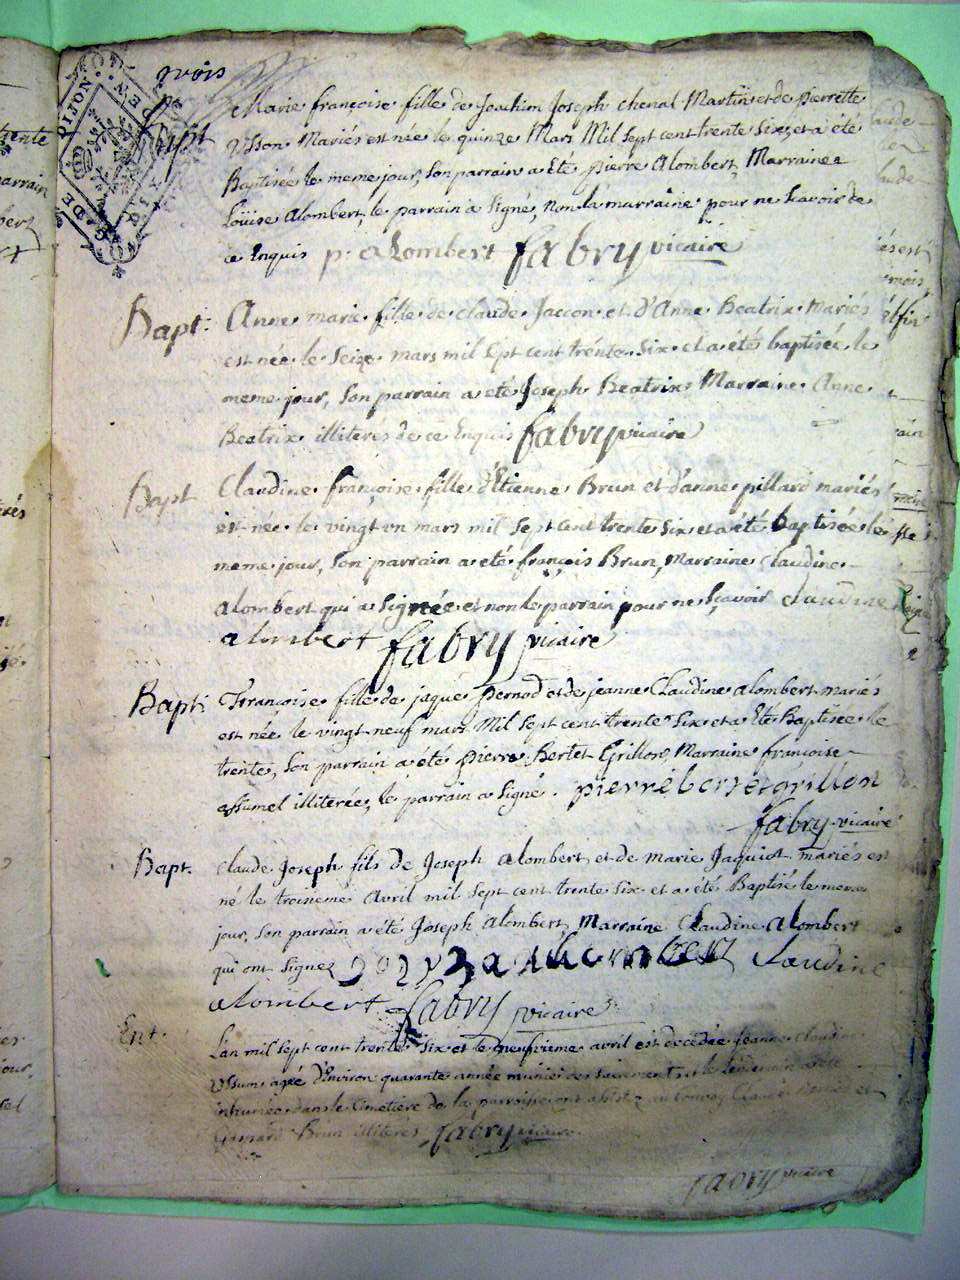 trois
Bapt
Marie françoise fille de Joachim Joseph Chenal Martin et de pierrette
Usson Mariés est née le quinze Mars Mil sept cent trente six et a été
Baptisée le meme jour, son parrain a eté pierre Alombert, Marraine
Loüise Alombert, le parrain a signé, non la marraine pour ne scavoir de
ce Enquis p. alombert fabry vicaire
Bapt: Anne marie fille de claude Jaccon et d'Anne Beatrix Mariés
est née le seize mars mil sept cent trente six et a été baptisée le
meme jour, son parrain a eté Joseph Beatrix Marraine Anne
Beatrix illiterés de ce Enquis fabry vicaire
Bapt Claudine françoise fille d'Etienne Brun et d'anne pillard mariés
est née le vingt un mars mil sept cent trente six et a été baptisée le
meme jour, son parrain a eté françois Brun, Marraine Claudine
alombert qui a signée et non le parrain pour ne sçavoir claudine
alombert fabry vicaire
Bapt: Francoise fille de jaque pernod et de jeanne Claudine alombert mariés
est née le vingt neuf mars Mil sept cent trente six et a Eté Baptisée le
trente, son parrain a été pierre Bertet Grillon, Marraine françoise
assumel illiterée, le parrain a signé. pierre bertet grillon
fabry vicaire
Bapt. Claude Joseph fils de Joseph Alombert et de marie Jaquiot mariés est
né le troisieme Avril mil sept cent trente six et a été Baptisé le meme
jour, son parrain a été Joseph Alombert, Marraine Claudine Alombert
qui ont signez claudine
alombert fabry vicaire
Ent. L'an mil sept cent trente six et le neufvieme avril est decedée Jeanne Claudine
Usson agée d'environ quarante année munie des sacrements et le lendemain a été
inhumée dans le Cimetiere de la parroisse ont assisté au convoy Claude et
Brun illiteres fabry vicaire
fabry vicaire